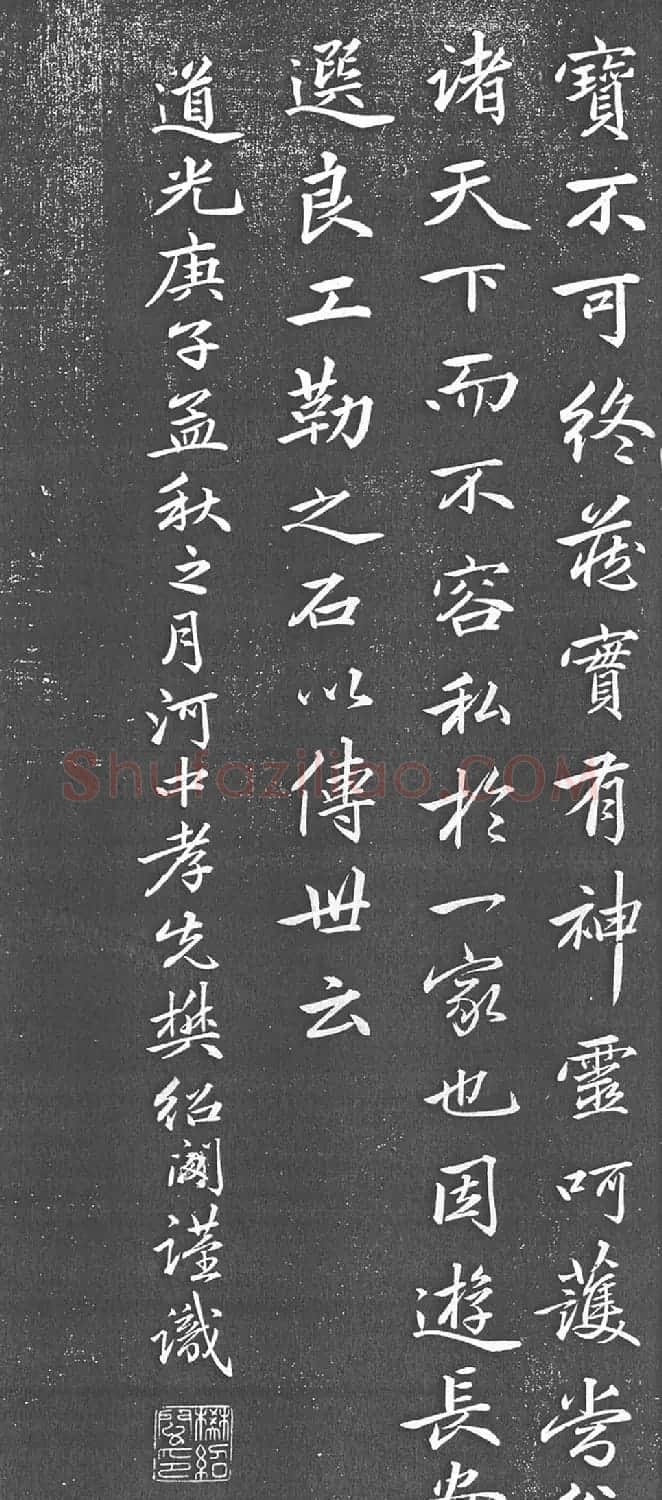 寶不可終藏實有神靈呵護當
諸天下而不容私於一家也因遊長安
選良工勒之石以傳世云
道光庚子孟秋之月河中孝先樊紹謹識
Shufaziliao.COM